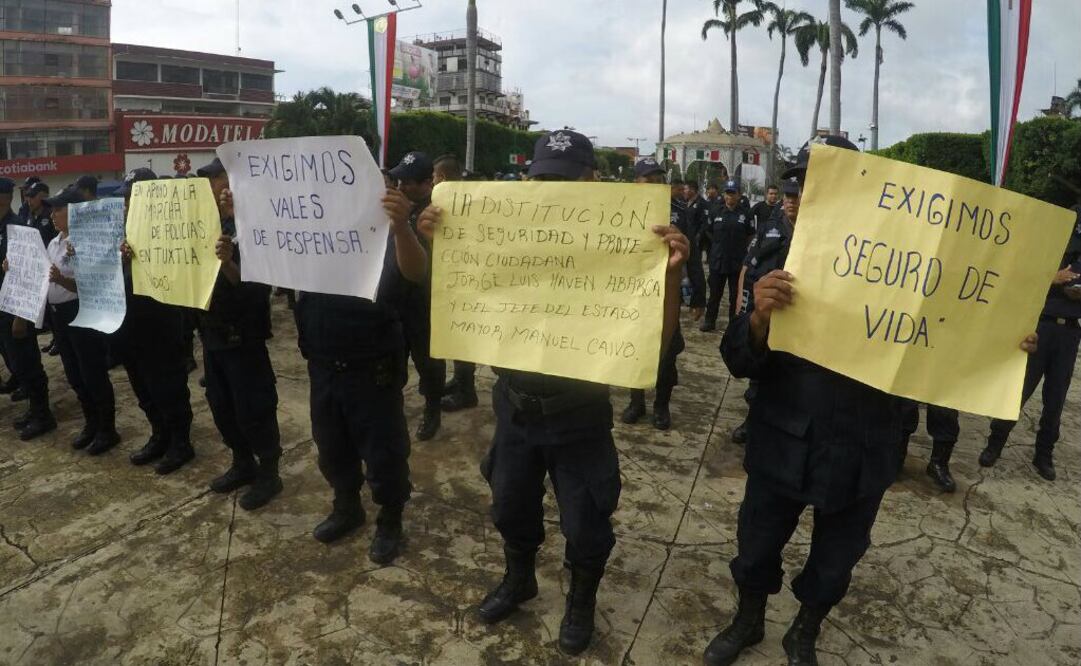 MODATELA
Scotiabank
EN APOYO A LA
MARCHA
DE POLICIAS
EN TUXTLA
"EXIGIMOS
VALES
DE DESPENSA."
"LA DISTITUCIÓN
DE SEGURIDAD Y PROTE-
CCIÓN CIUDADANA
JORGE LUIS HAVEN ABARCA
Y DEL JEFE DEL ESTADO
MAYOR, MANUEL CAIVO.
"EXIGIMOS
SEGURO DE
VIDA."